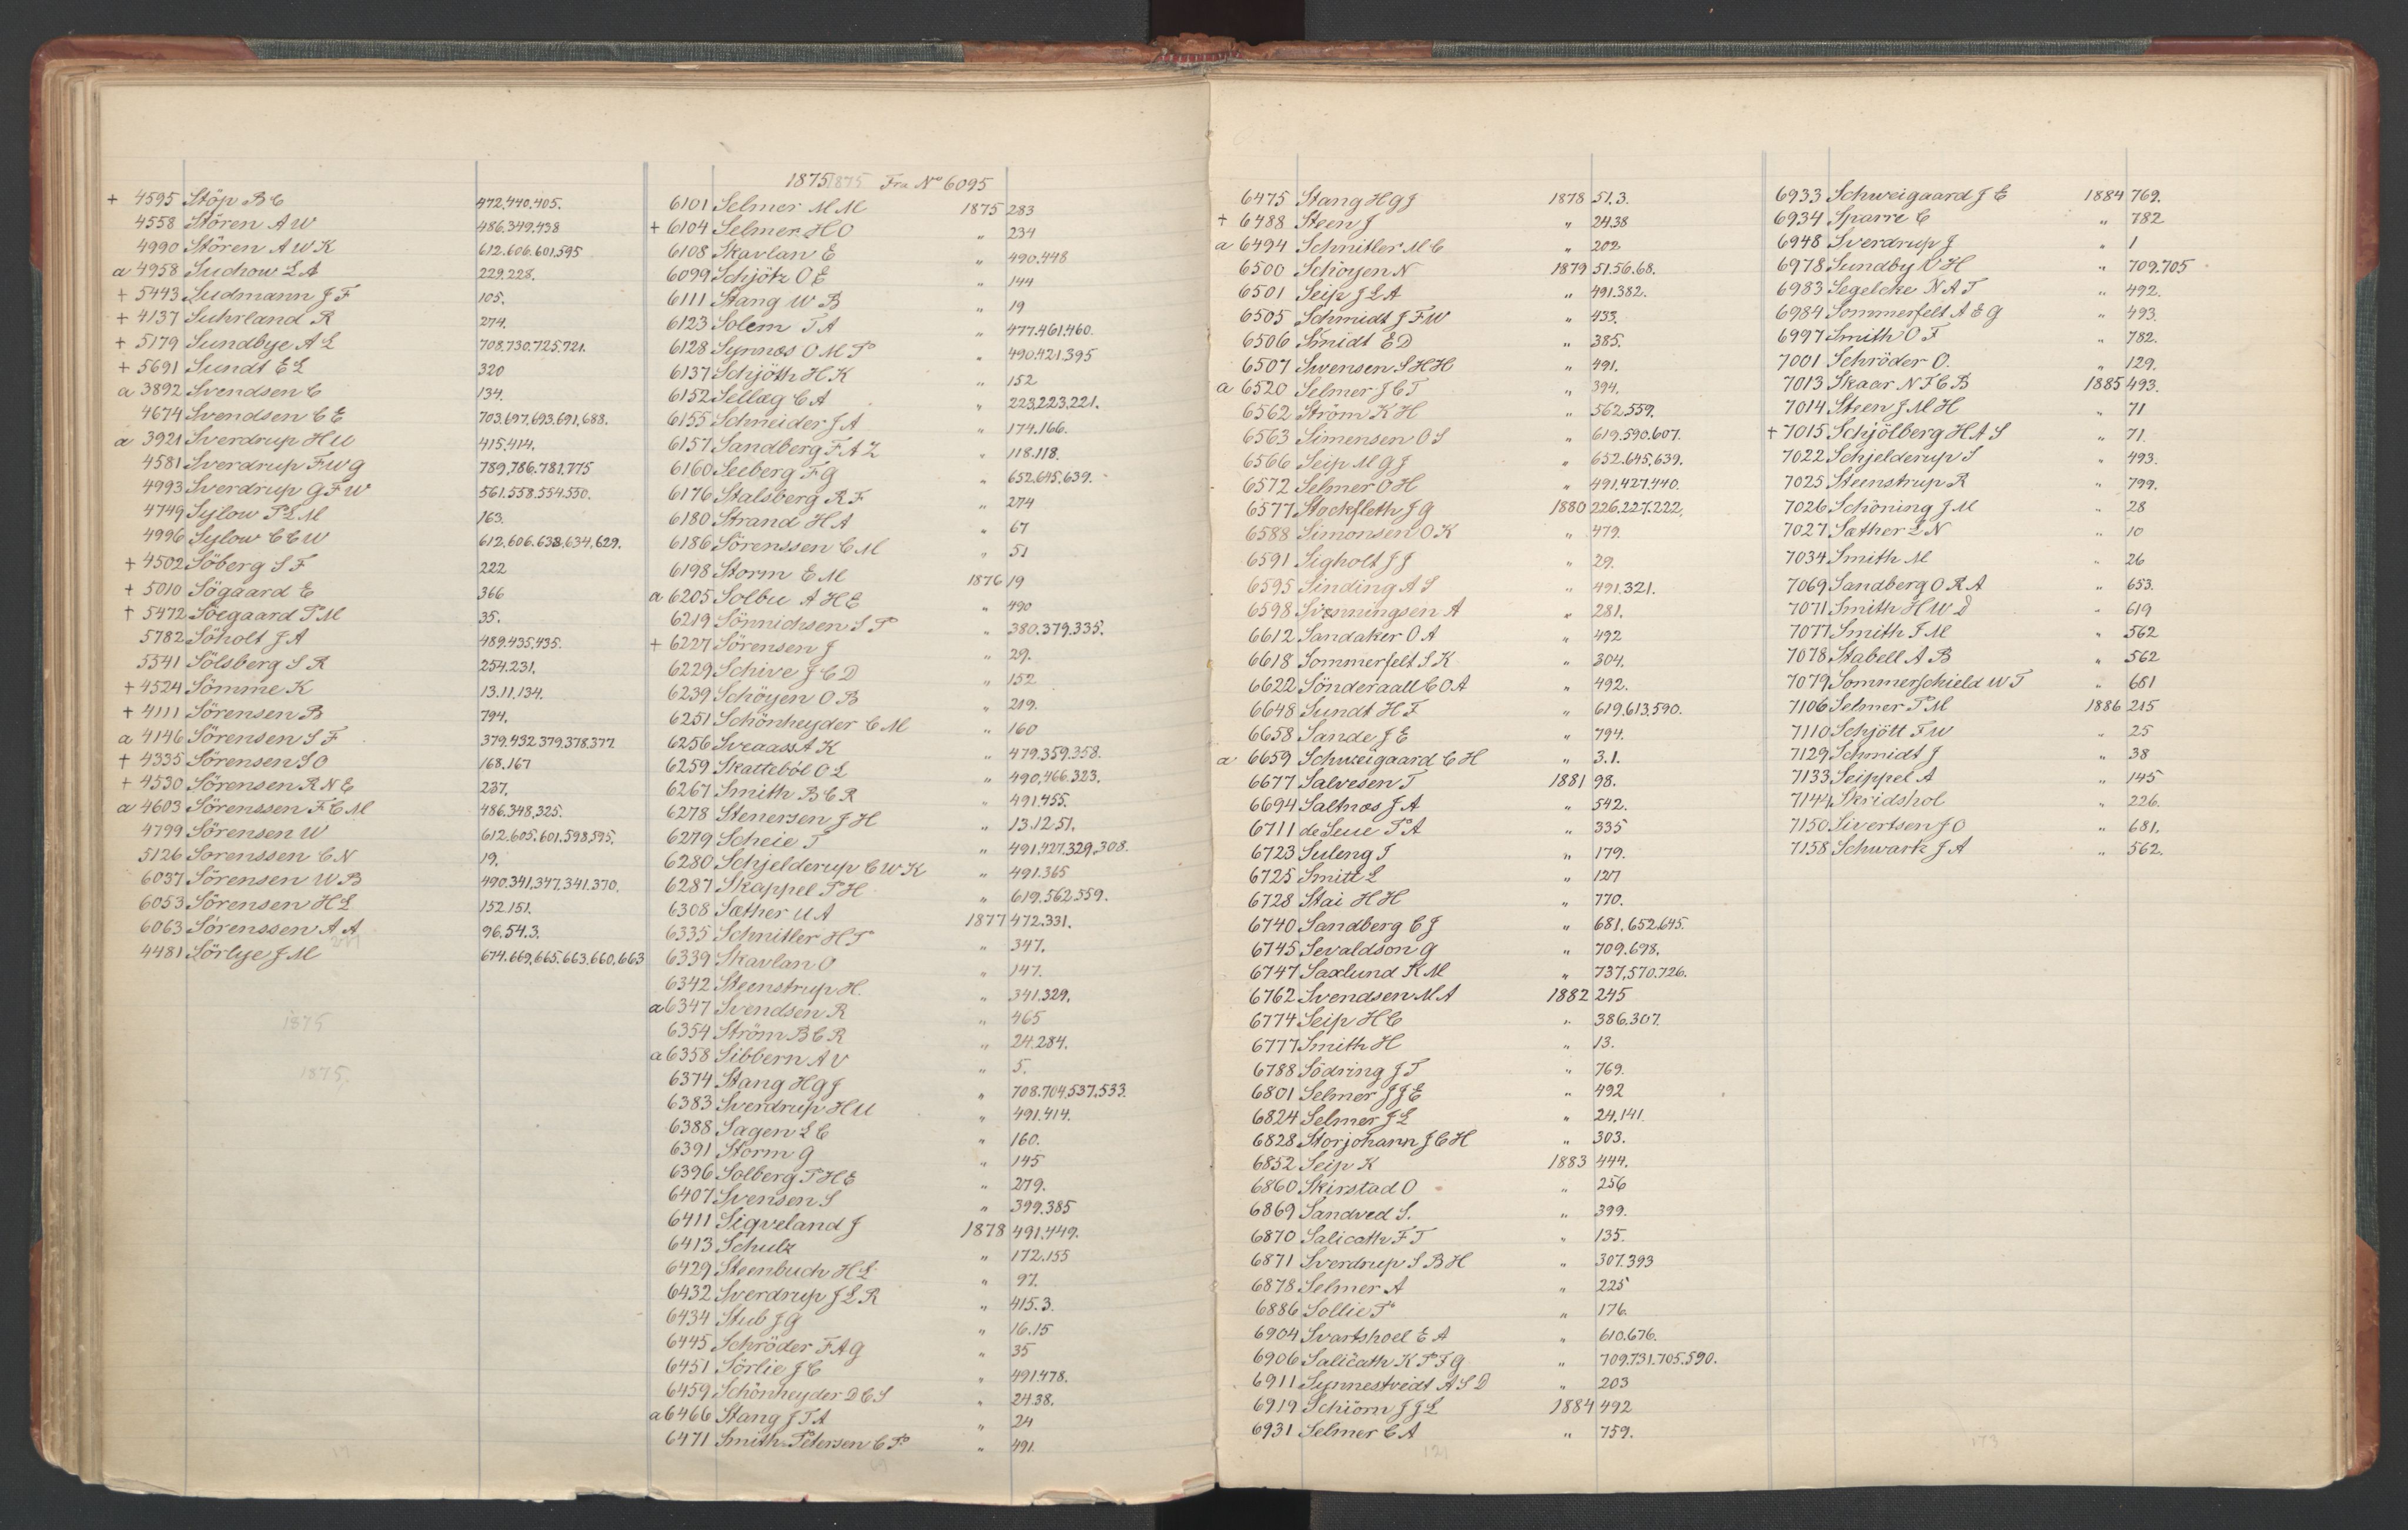 + 4595 Stöp B C 472.440.405.
4558 Stören A W 486.349.438
4990 Stören A W K 612.606.601.595
a 4958 Suchow L A 229.228.
+ 5443 Sudmann J F 105.
+ 4137 Suhrland R 274.
+ 5179 Sundbye A L 708.730.725.721.
+ 5691 Sundt E L 320
a 3892 Svendsen C 134.
4674 Svendsen C E 703.697.693.691.688.
a 3921 Sverdrup H U 415.414.
4581 Sverdrup F W G 789.786.781.775
4993 Sverdrup G F W 561.558.554.550.
4749 Sylow P L M 163.
4996 Sylow C C W 612.606.638.634.629.
+ 4502 Söberg S F 222
+ 5010 Sögaard E 366
+ 5472 Söegaard P M 35.
5782 Söholt J A 489.435.435.
5541 Sölsberg S R 254.231.
+ 4524 Sömme K 13.11.134.
+ 4111 Sörensen B 794.
a 4146 Sörensen S F 379.432.379.378.377.
+ 4335 Sörensen S O 168.167
+ 4530 Sörensen R N E 237.
a 4603 Sörenssen F C M 486.348.325.
4799 Sörensen W 612.605.601.598.595.
5126 Sorenssen C N 19.
6037 Sörensen W B 490.341.347.341.370.
6053 Sörensen H L 152.151.
6063 Sörenssen A A 96.54.3.
4481 Sörlye J M 674.669.665.663.660.663
1875
1875
1875 1875 Fra No 6095
6101 Selmer M M 1875 283
+ 6104 Selmer H O " 234
6108 Skavlan E " 490.448
6099 Schjötz O E " 144
6111 Stang W B " 19
6123 Solem T A " 477.461.460.
6128 Synnæs O M P " 490.421.395
6137 Schjöth H K " 152
6152 Sellæg C A " 223.223.221.
6155 Schneider J A " 174.166.
6157 Sandberg F A Z " 118.118.
6160 Seeberg F G " 652.645.639.
6176 Stalsberg R F " 274
6180 Strand H A " 67
6186 Sörenssen C M " 51
6198 Storm E M 1876 19
a 6205 Solbu A H E " 490
6219 Sönnichsen S P " 380.379.335.
+ 6227 Sörensen J " 29.
6229 Schive J C D " 152
6239 Schöyen O B " 219.
6251 Schönheyder C M " 160
6256 Sveaass A K " 479.359.358.
6259 Skatteböl O L " 490.466.323.
6267 Smith B C R " 491.455.
6278 Stenersen J H " 13.12.51.
6279 Scheie T " 491.427.329.308.
6280 Schjelderup C W K " 491.365
6287 Skappel P H " 619.562.559.
6308 Sæther U A 1877 472.331.
6335 Schnitler H P " 347.
6339 Skavlan O " 147.
6342 Steenstrup H. " 341.329.
a 6347 Svendsen R " 465
6354 Ström B C R " 24.284.
a 6358 Sibbern A V " 5.
6374 Stang H G J " 708.704.537.533.
6383 Sverdrup H U " 491.414.
6388 Sagen L C " 160.
6391 Storm G " 145
6396 Solberg P H E " 279.
6407 Svensen S " 399.385
6411 Sigveland J 1878 491.449.
6413 Schulz " 172.155
6429 Steenbuch H L " 97.
6432 Sverdrup J L R " 415.3.
6434 Stub J G " 16.15
6445 Schröder F A G " 35
6451 Sörlie J C " 491.478.
6459 Schönheyder D C S " 24.38.
a 6466 Stang J T A " 24
6471 Smith-Petersen C P. " 491.
6475 Stang H G J 1878 51.3.
+ 6488 Steen J " 24.38
a 6494 Schnitler M C " 202.
6500 Schöyen N 1879 51.56.68.
6501 Seip J L A " 491.382.
6505 Schmidt J F W " 433.
6506 Smidt E D " 385.
6507 Swensen S H H " 491.
a 6520 Selmer J C T " 394.
6562 Ström K H " 562.559.
6563 Simensen O S " 619.590.607.
6566 Seip M G J " 652.645.639.
6572 Selmer O H " 491.427.440.
6577 Stockfleth J G 1880 226.227.222.
6588 Simonsen O K " 479.
6591 Sigholt J J " 29.
6595 Sinding A S " 491.321.
6598 Svenningsen A " 281.
6612 Sandaker O A " 492
6618 Sommerfelt S K " 304.
6622 Sönderaall C O A " 492.
6648 Sundt H F " 619.613.590.
6658 Sande J E " 794.
a 6659 Schweigaard C H " 3.1.
6677 Salvesen T 1881 98.
6694 Saltnæs J A " 542.
6711 de Seue P A " 335
6723 Suleng T " 179.
6725 Smitt L " 127
6728 Stai H H " 770.
6740 Sandberg C J " 681.652.645.
6745 Sevaldson G " 709.698.
6747 Saxlund K M " 737.570.726.
6762 Svendsen M A 1882 245
6774 Seip H C " 386.307.
6777 Smith H " 13.
6788 Södring J T " 769.
6801 Selmer J J E " 492
6824 Selmer J L " 24.141.
6828 Storjohann J C H " 303.
6852 Seip K 1883 444.
6860 Skirstad O " 256
6869 Sandved S. " 399.
6870 Salicath F T " 135.
6871 Sverdrup S B H " 307.393
6878 Selmer A " 225
6886 Sollie P " 176.
6904 Svartshoel E A " 610.676.
6906 Salicath K P F G " 709.731.705.590.
6911 Synnestvedt A S D " 203
6919 Schiörn J J L 1884 492
6931 Selmer C A " 759.
121
6933 Schweigaard J E 1884 769.
6934 Sparre C " 782
6948 Sverdrup J " 1
6978 Sundby V H " 709.705
6983 Segelcke N A T " 492.
6984 Sommerfelt A E G " 493.
6997 Smith O F " 782.
7001 Schröder O. " 129.
7013 Skaar N F C B 1885 493.
7014 Steen J M H " 71
+ 7015 Schjölberg H A S " 71.
7022 Schjelderup S " 493.
7025 Steenstrup R " 799.
7026 Schöning J M " 28
7027 Sæther L N " 10
7034 Smith M " 26
7069 Sandberg O R A " 653.
7071 Smith H W D " 619
7077 Smith J M " 562
7078 Stabell A B " 562
7079 Sommerschield W T " 681
7106 Selmer P M 1886 215
7110 Schjött F W " 25
7129 Schmidt J " 38
7133 Seippel A " 145
7144 Skridshol " 226.
7150 Sivertsen J O " 681.
7158 Schwartz J A " 562.
173